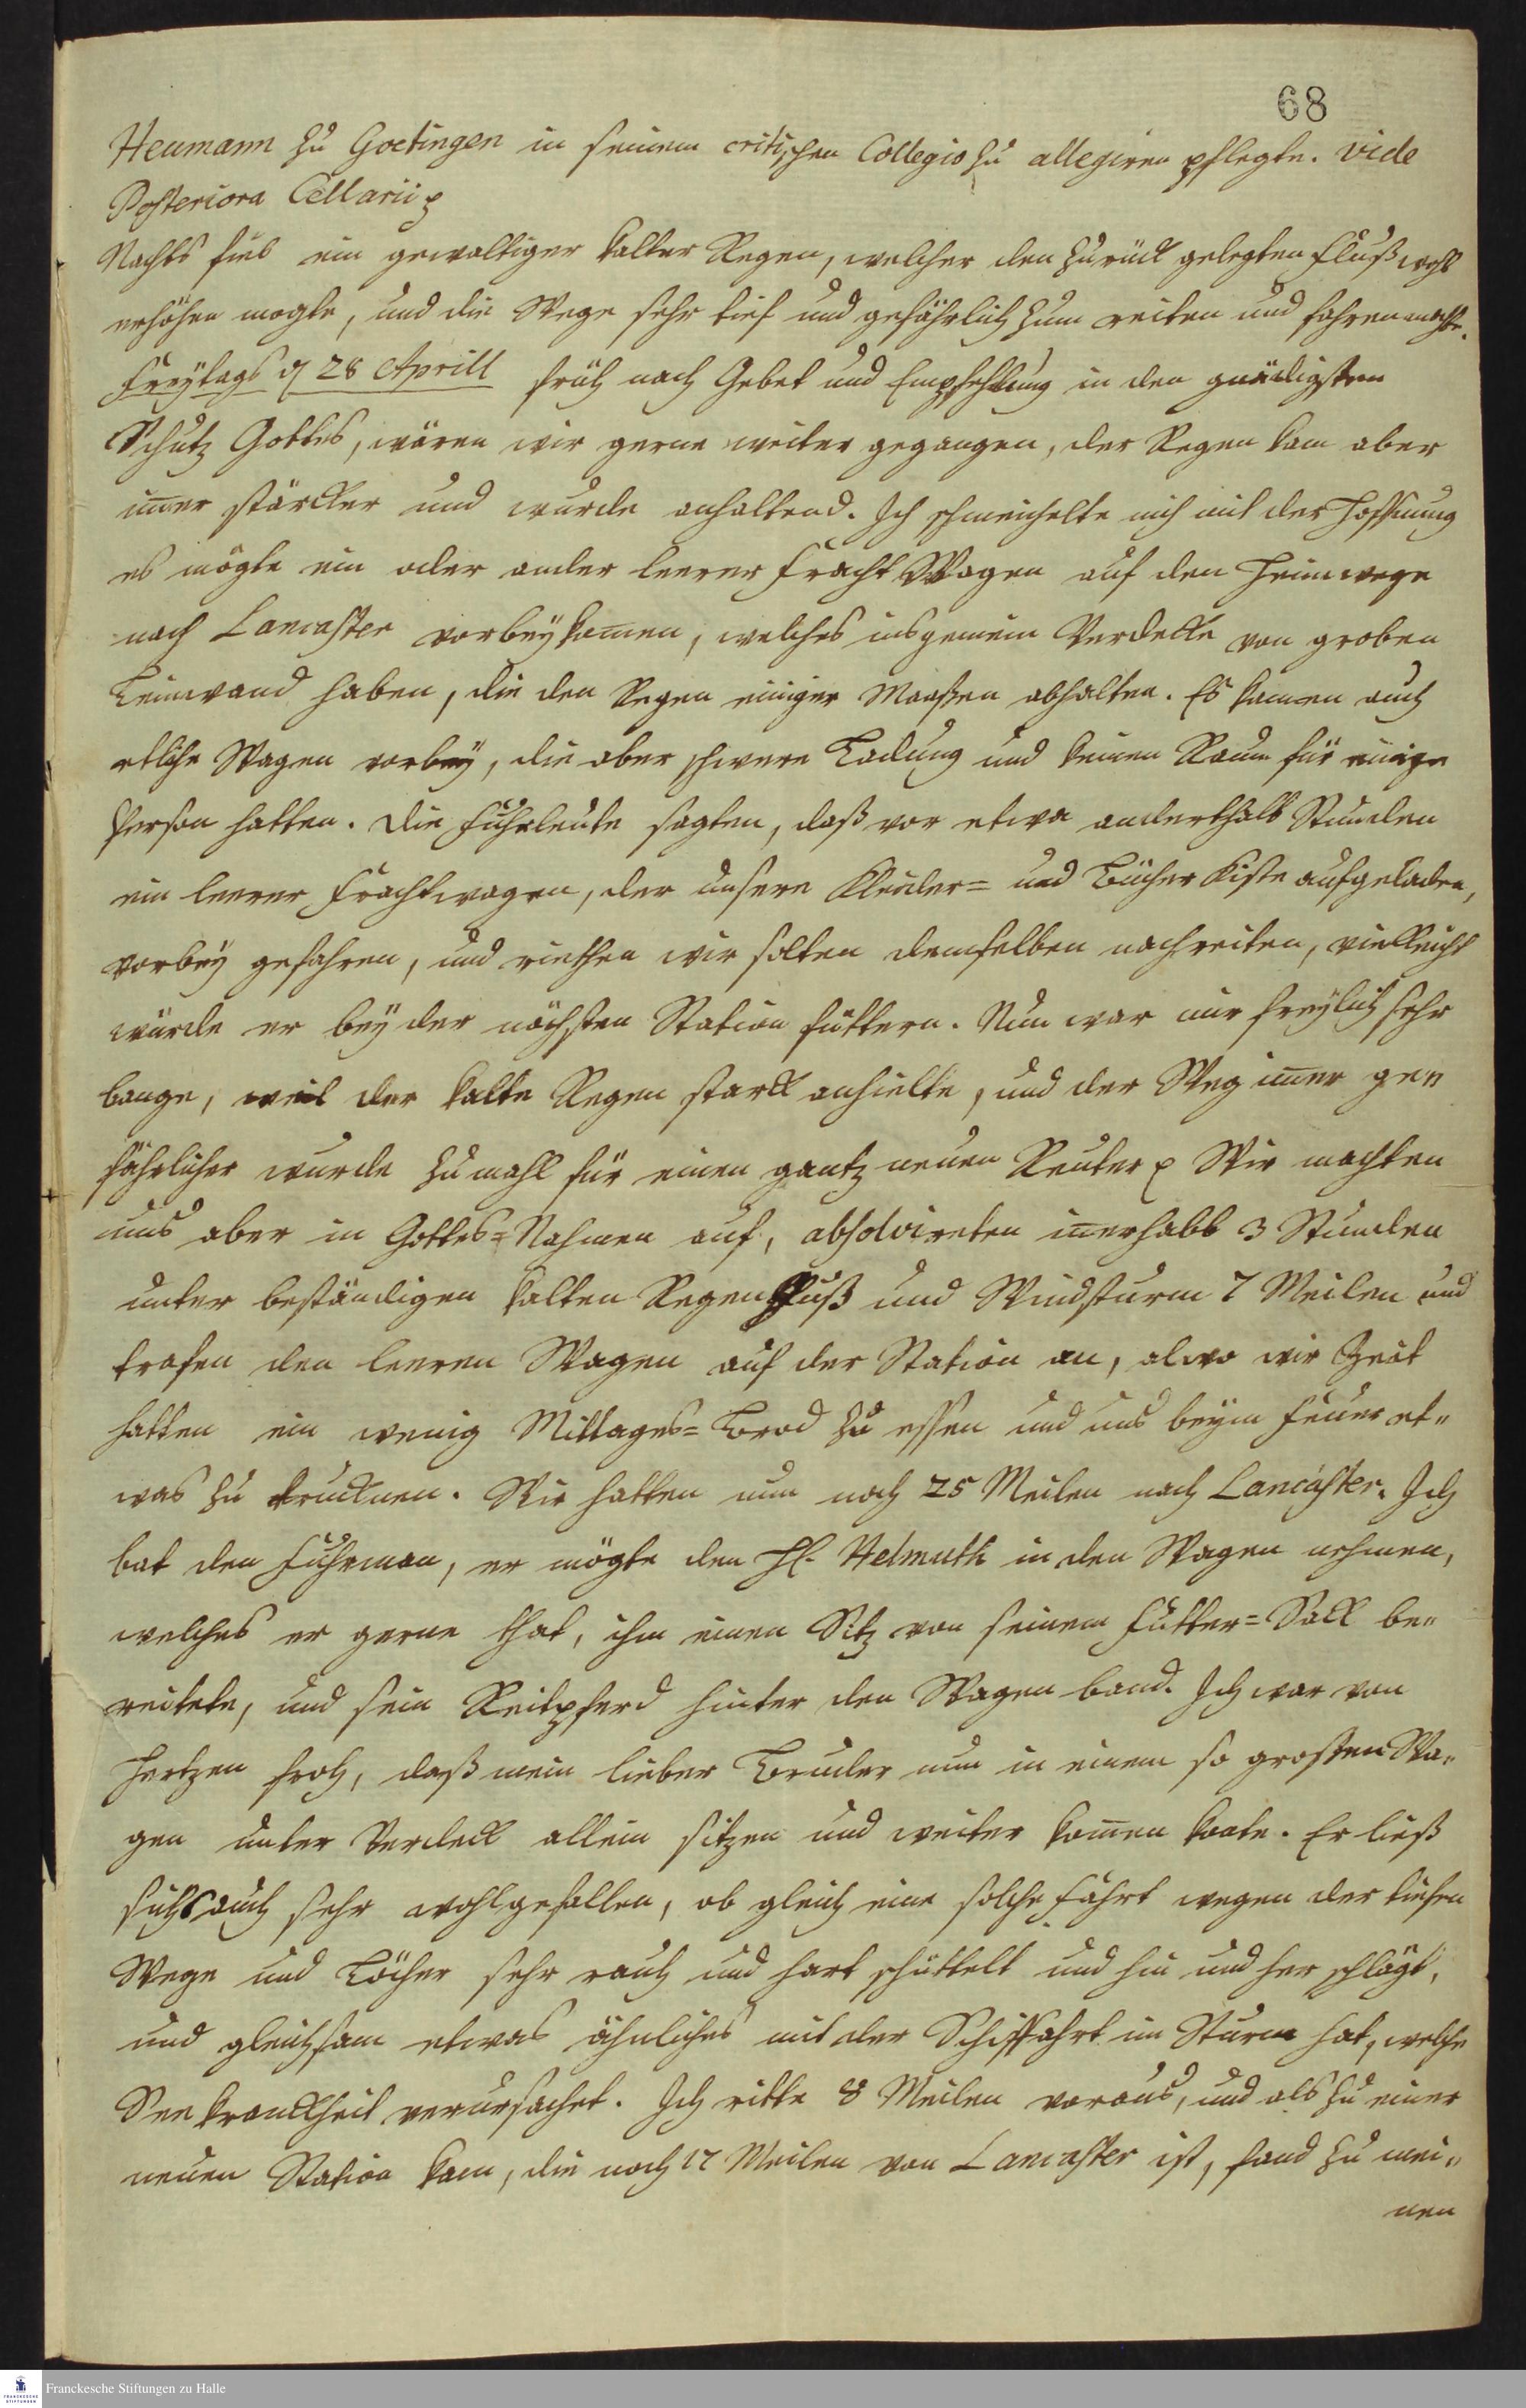 68
Heumann zu Goetingen in seinem critischen Collegio zu allegiren pflegte. vide
Posteriora Cellarii
Nachts fiel ein gewaltiger kalter Regen, welcher den zurück gelegten Fluß wohl
erhöhen mogte, und die Wege sehr tief und gefährlich zum reiten und fahren machte.
Freytags d 28 Aprill früh nach Gebet und Empfehlung in den gnädigsten
Schutz Gottes, wären wir gerne weiter gegangen, der Regen kam aber
im̅er stärcker und wurde anhaltend. Ich schmeichelte mich mit der Hoffnung
es mögte ein oder ander leerer Fracht Wagen auf den Heimwege
nach Lancaster vorbey kom̅en, welches insgemein Verdecke von groben
Leinwand haben, die den Regen einiger Maaßen abhalten. Es kamen auch
etliche Wagen vorbey, die aber schwere Ladung und keinen Raum für einige
Person hatten. Die Fuhrleute sagten, daß vor etwa anderthalb Stunden
ein leerer Frachtwagen, der unsere Kleider= und Bücher Kiste aufgeladen,
vorbey gefahren, und riethen wir solten demselben nachreiten, vielleicht
würde er bey der nächsten Station füttern. Nun war mir freylich sehr
bange, weil der kalte Regen starck anhielte, und der Weg im̅er ge„
fährlicher wurde zumahl für einen gantz neuen Reuter Wir machten
uns aber in Gottes=Nahmen auf, absolvireten in̅erhalb 3 Stunden
unter beständigen kalten Regen Guß und Windsturm 7 Meilen und
trafen den leeren Wagen auf der Station an, alwo wir Zeit
hatten ein wenig Mittages=Brod zu essen und uns beym Feuer et„
was zu trucknen. Wir hatten nun noch 25 Meilen nach Lancaster. Ich
bat den Fuhrman, er mögte den H. Helmuth in den Wagen nehmen,
welches er gerne that, ihm einen Sitz von seinem Futter=Sack be„
reitete, und sein Reitpferd hinter den Wagen band. Ich war von
Hertzen froh, daß mein lieber Bruder nun in einem so großen Wa„
gen unter Verdeck allein sitzen und weiter kom̅en konte. Er ließ
sichs auch sehr wohlgefallen, ob gleich eine solche Fahrt wegen der tiefen
Wege und Löcher sehr rauh und hart schüttelt und hin und her schlägt,
und gleichsam etwas ähnliches mit der Schiffahrt im Sturm hat, welche
See kranckheit verursachet. Ich ritte 8 Meilen voraus, und als zu einer
neuen Station kam, die noch 17 Meilen von Lancaster ist, fand zu mei„
nen
FRANCKESCHE STIFTUNGEN
Franckesche Stiftungen zu Halle